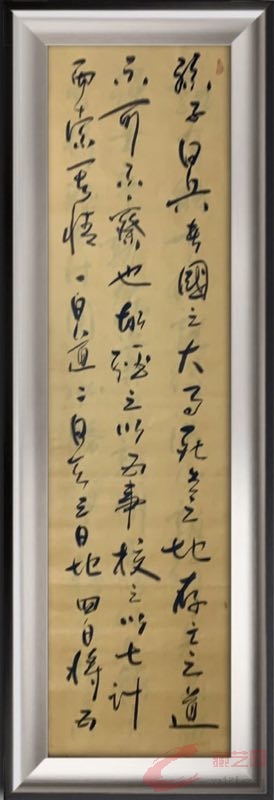 孫子曰兵者國之大事死生之地存亡之道
不可不察也故經之以五事校之以七計
而索其情一曰道二曰天三曰地四曰將五